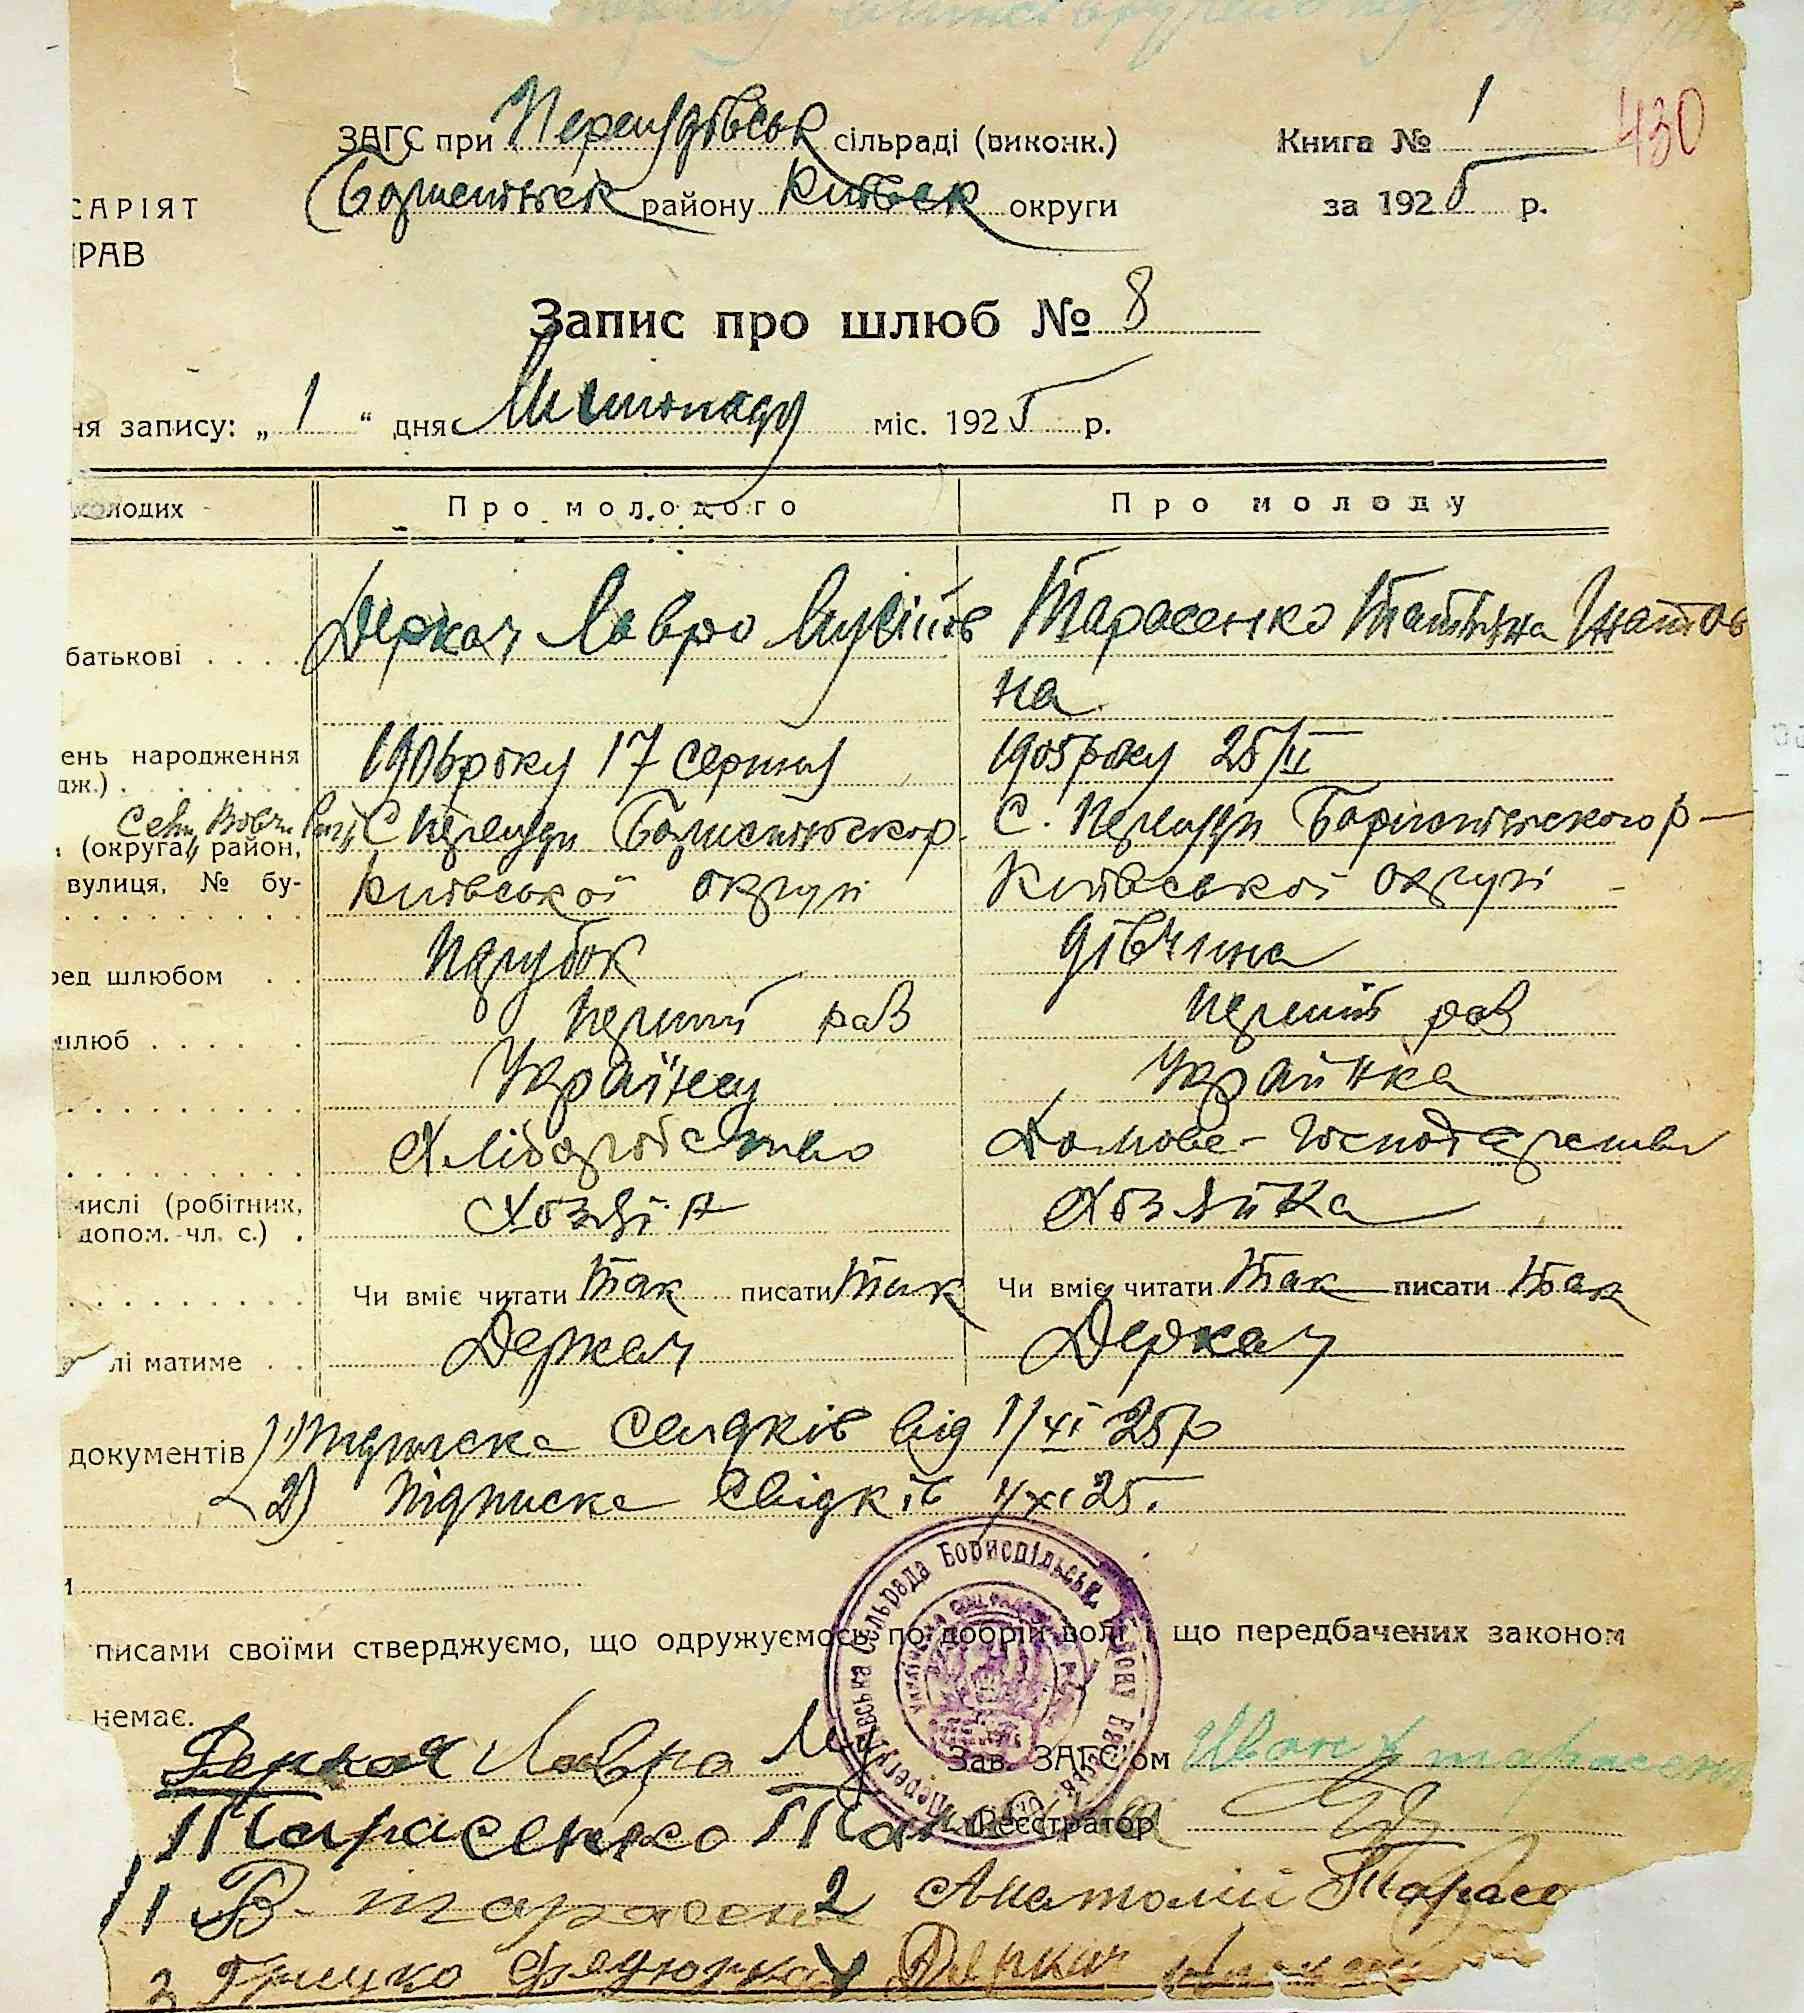 430
ЗАГС при Перегудівськ сільраді (виконк.) Книга № 1
САРІЯТ Бориспільськ району Київськ округи за 1925 р.
РАВ
Запис про шлюб № 8
ня запису: „ 1 “ дня Листопаду міс. 1925 р.
молодих Про молодого Про молоду
батькові Деркач Лавро Тарасенко Татьяна Гнатов
на
ень народження 1906 року 17 серпня 1905 року 25/II
дж.)
С Перегуди Бориспільськ р. С. Перегуди Бориспільского р
(округа, район,
вулиця, № бу- Київської округи Київської округи
ред шлюбом Парубок дівчина
шлюб перший раз перший раз
Українец Українка
Хліборобство Домове-господарство
числі (робітник, Хозяїн Хозяйка
допом. чл. с.)
Чи вміє читати Так писати Так Чи вміє читати Так писати Так
лі матиме Деркач Деркач
документів 1) Підписка свідків від 1/XI 25 р
2) Підписка свідків 1/XI 25.
писами своїми стверджуємо, що одружуємось по добрій волі і що передбачених законом
немає.
Деркач Лавро Зав. ЗАГС'ом Иван тарасен
Тарасенко Реєстратор
1 В. тарасен 2 Анатолій Тарасе
3 Грицко Деркач
Перегудівська Сільрада Бориспільськ. Району Київськ. Округи